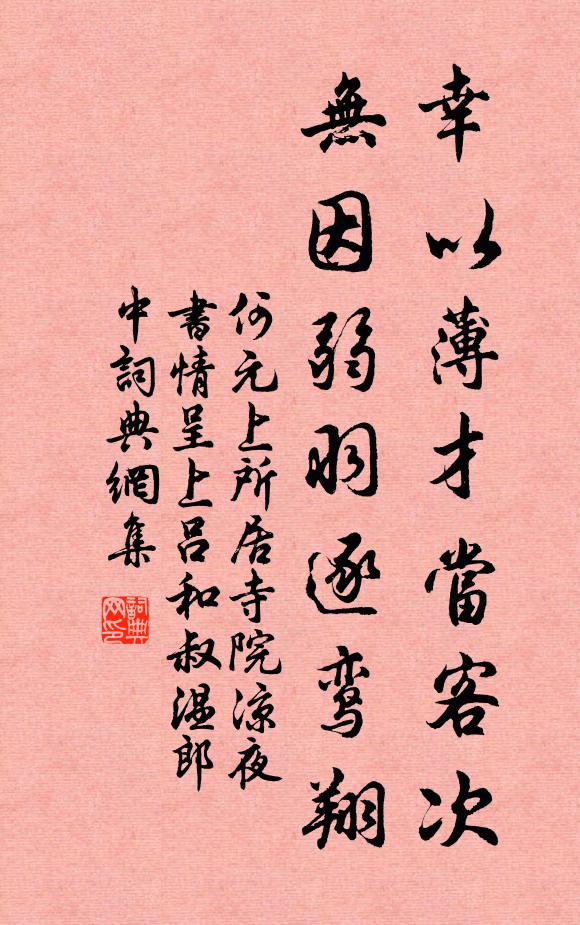 幸以薄才當客次
無因弱羽逐鸾翔
何元上所居寺院涼夜
書情呈上吕和叔温郎
中詞典網集
詞典
网印